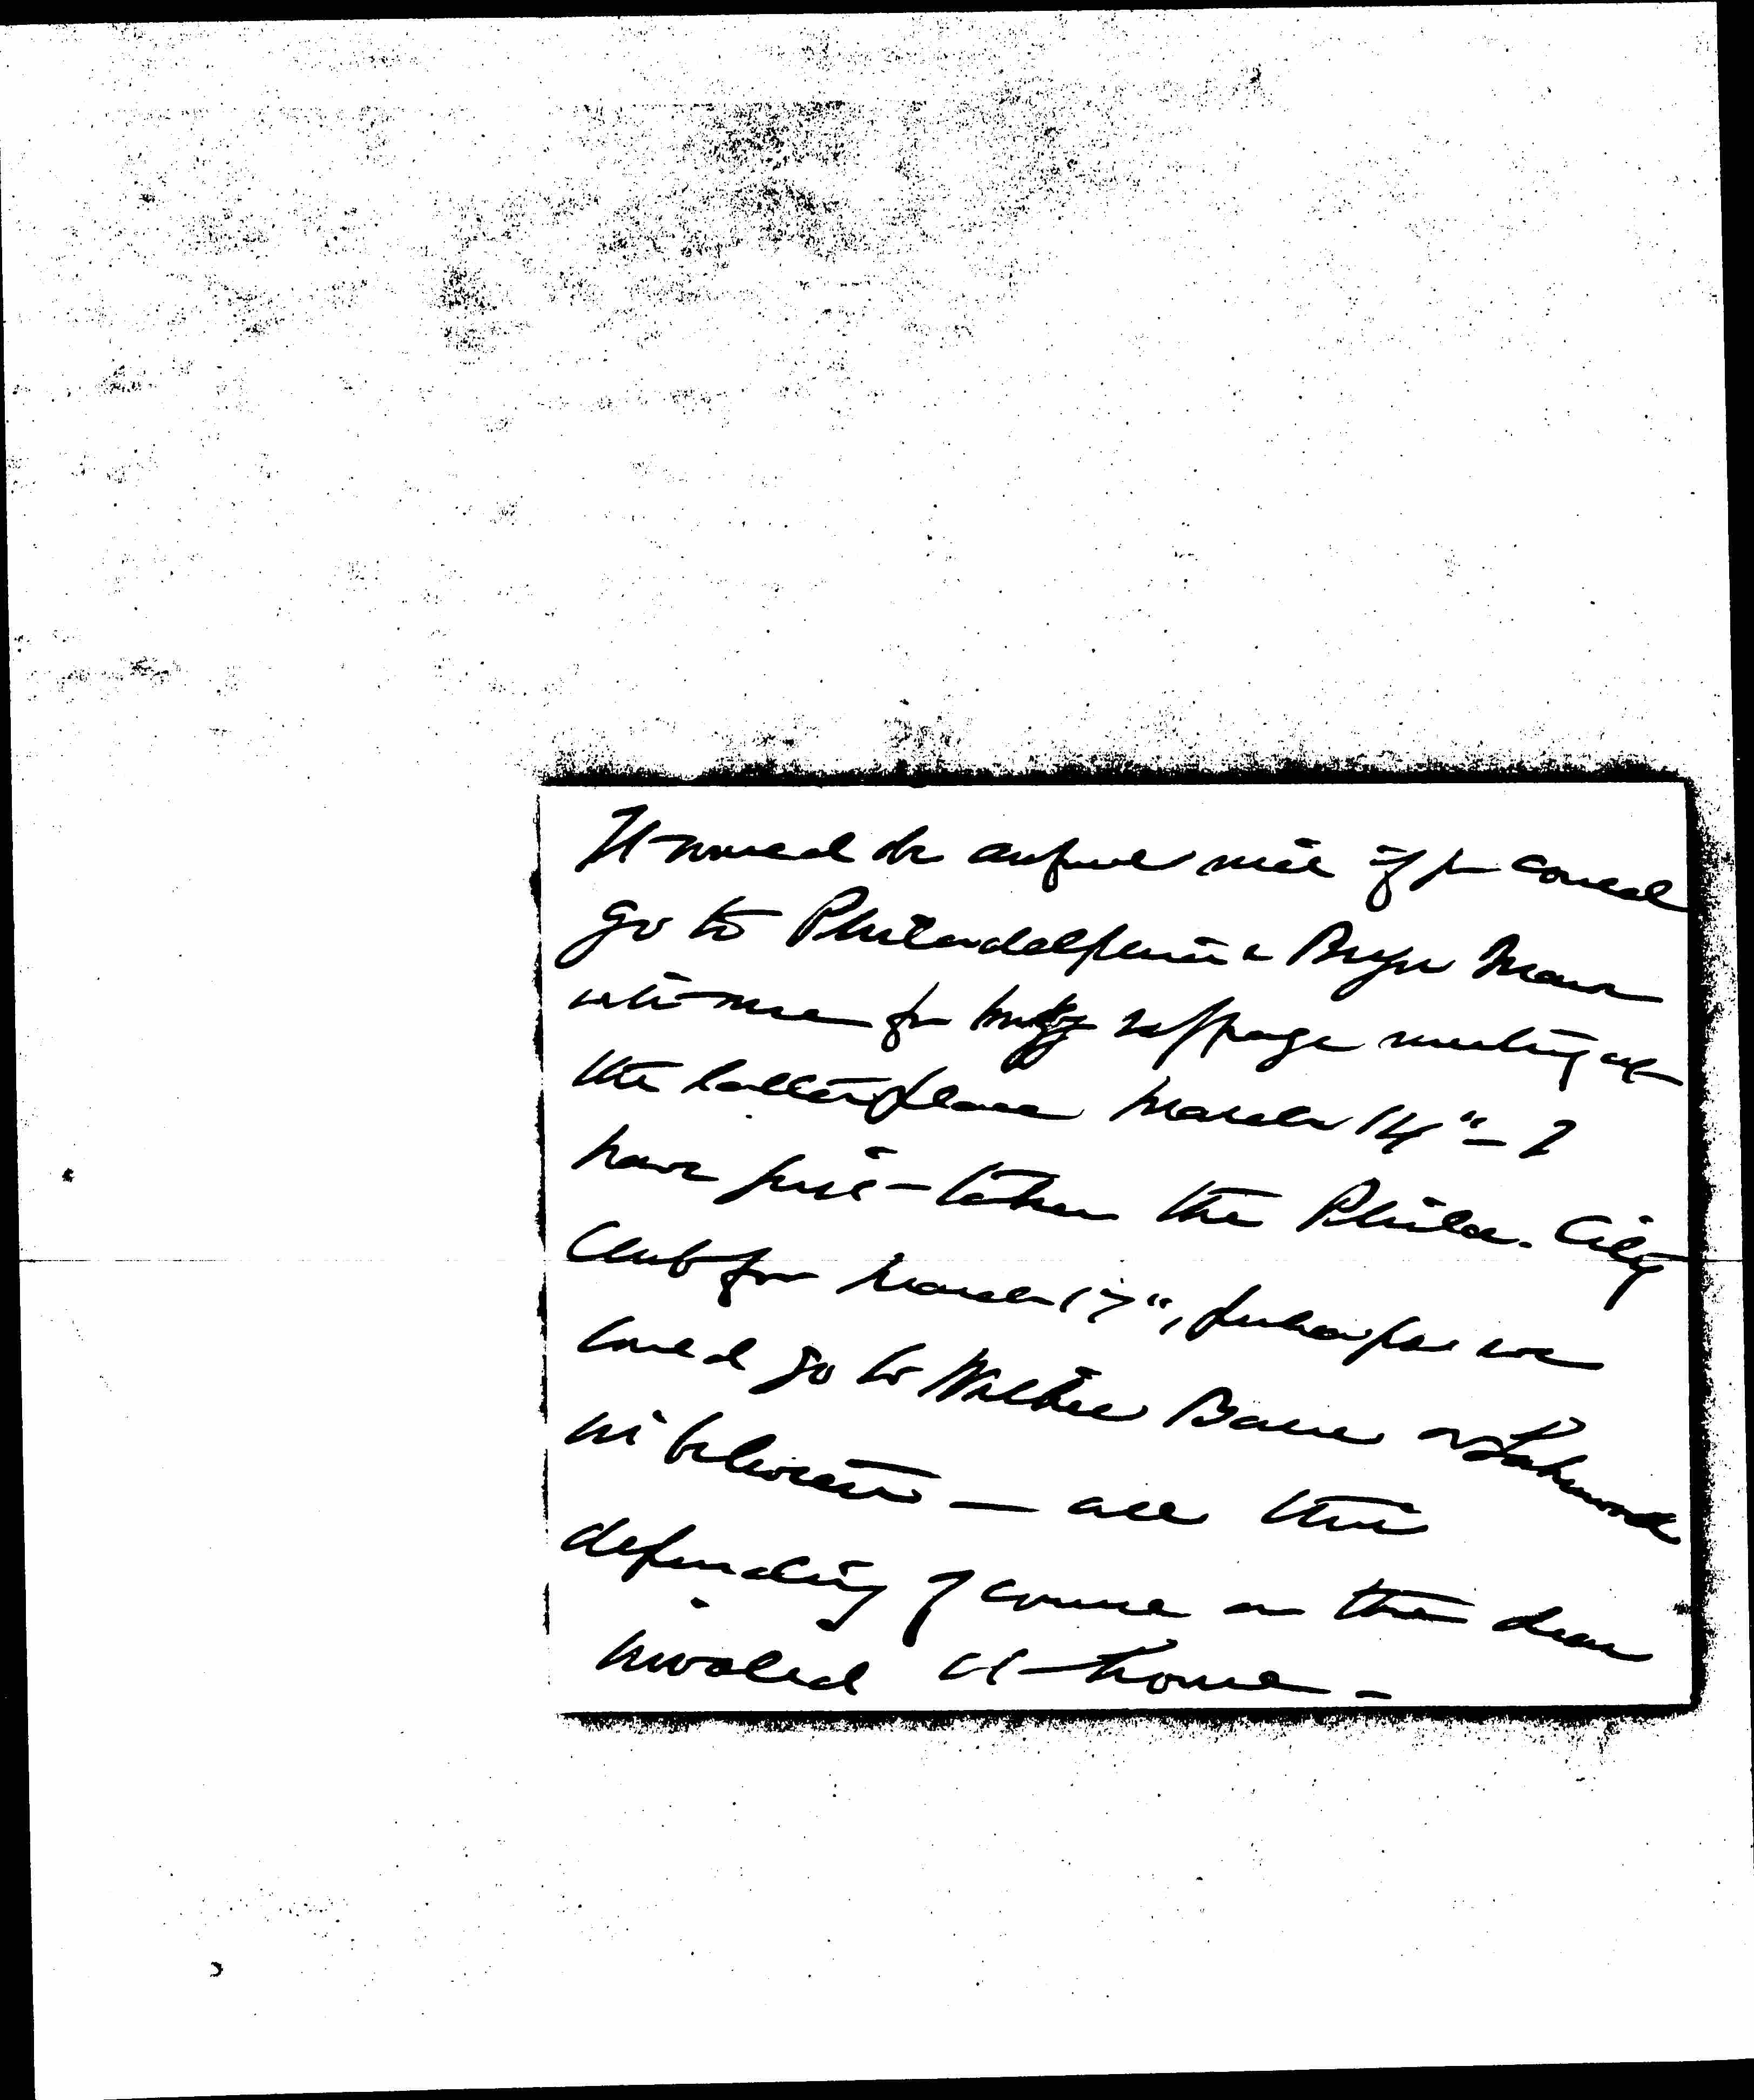 It would be awful nice if you could
go to Philadelphia & Bryn Mawr
with me for my suffrage meeting at
the latter place March 14" – I
have just taken the Phila. City
Club for March 17", perhaps we
could go to Walter's Baths or Lakewood
in between – all this
depending of course on the dear
invalid at home –